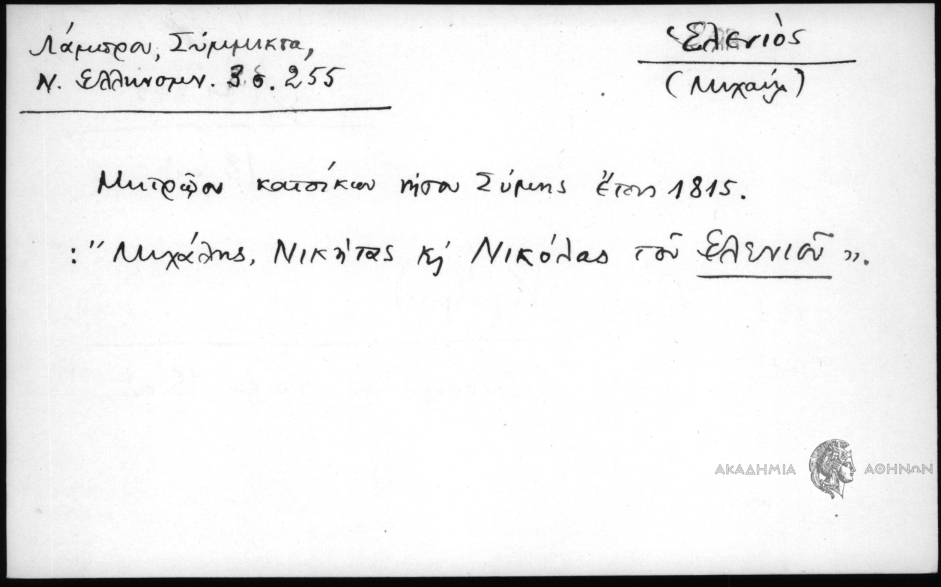 Λάμπρου, Σύμμικτα,
Ν. Ἑλληνομν. 3 σ. 255
Ἑλενιὸς
(Μιχαὴλ)
Μητρῷον κατοίκων νήσου Σύμης ἔτους 1815.
: "Μιχάλης, Νικήτας κὴ Νικόλας τοῦ Ἑλενιοῦ".
ΑΚΑΔΗΜΙΑ ΑΘΗΝΩΝ